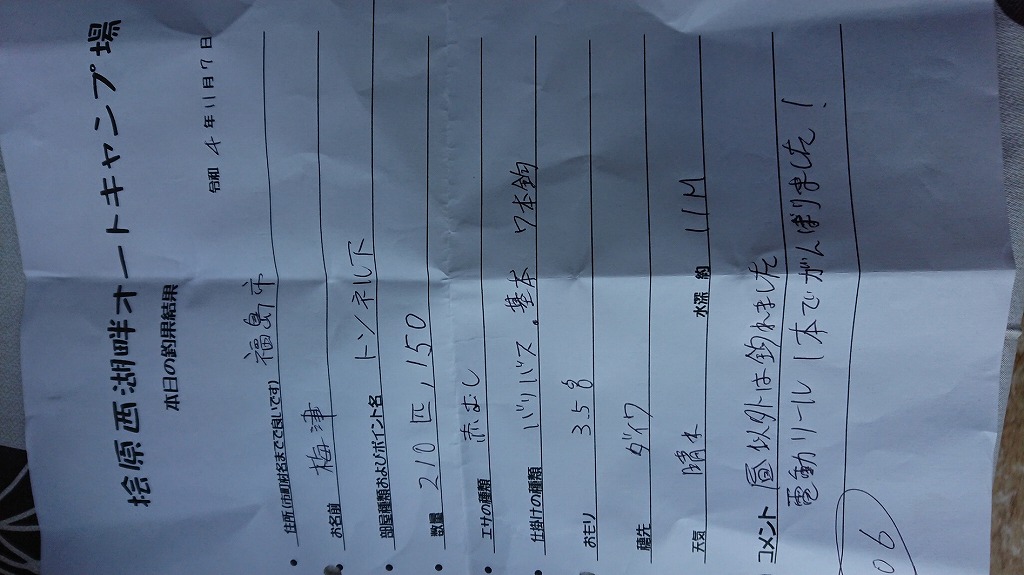 桧原西湖畔オートキャンプ場
本日の釣果結果
令和 4年11月7日
・ 住所(市町村名までで良いです) 福島市
・ お名前 梅津
・ 部屋種類およびポイント名 トンネル下
・ 数量 210匹,150
・ エサの種類 赤むし
・ 仕掛けの種類 バリバス.基本 7本鈎
・ おモリ 3.5g
・ 穂先 ダイワ
・ 天気 晴れ 水深 約 11M
・ コメント 昼以外は釣れました
電動リール1本でがんばりました!
06